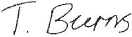 T. Burns